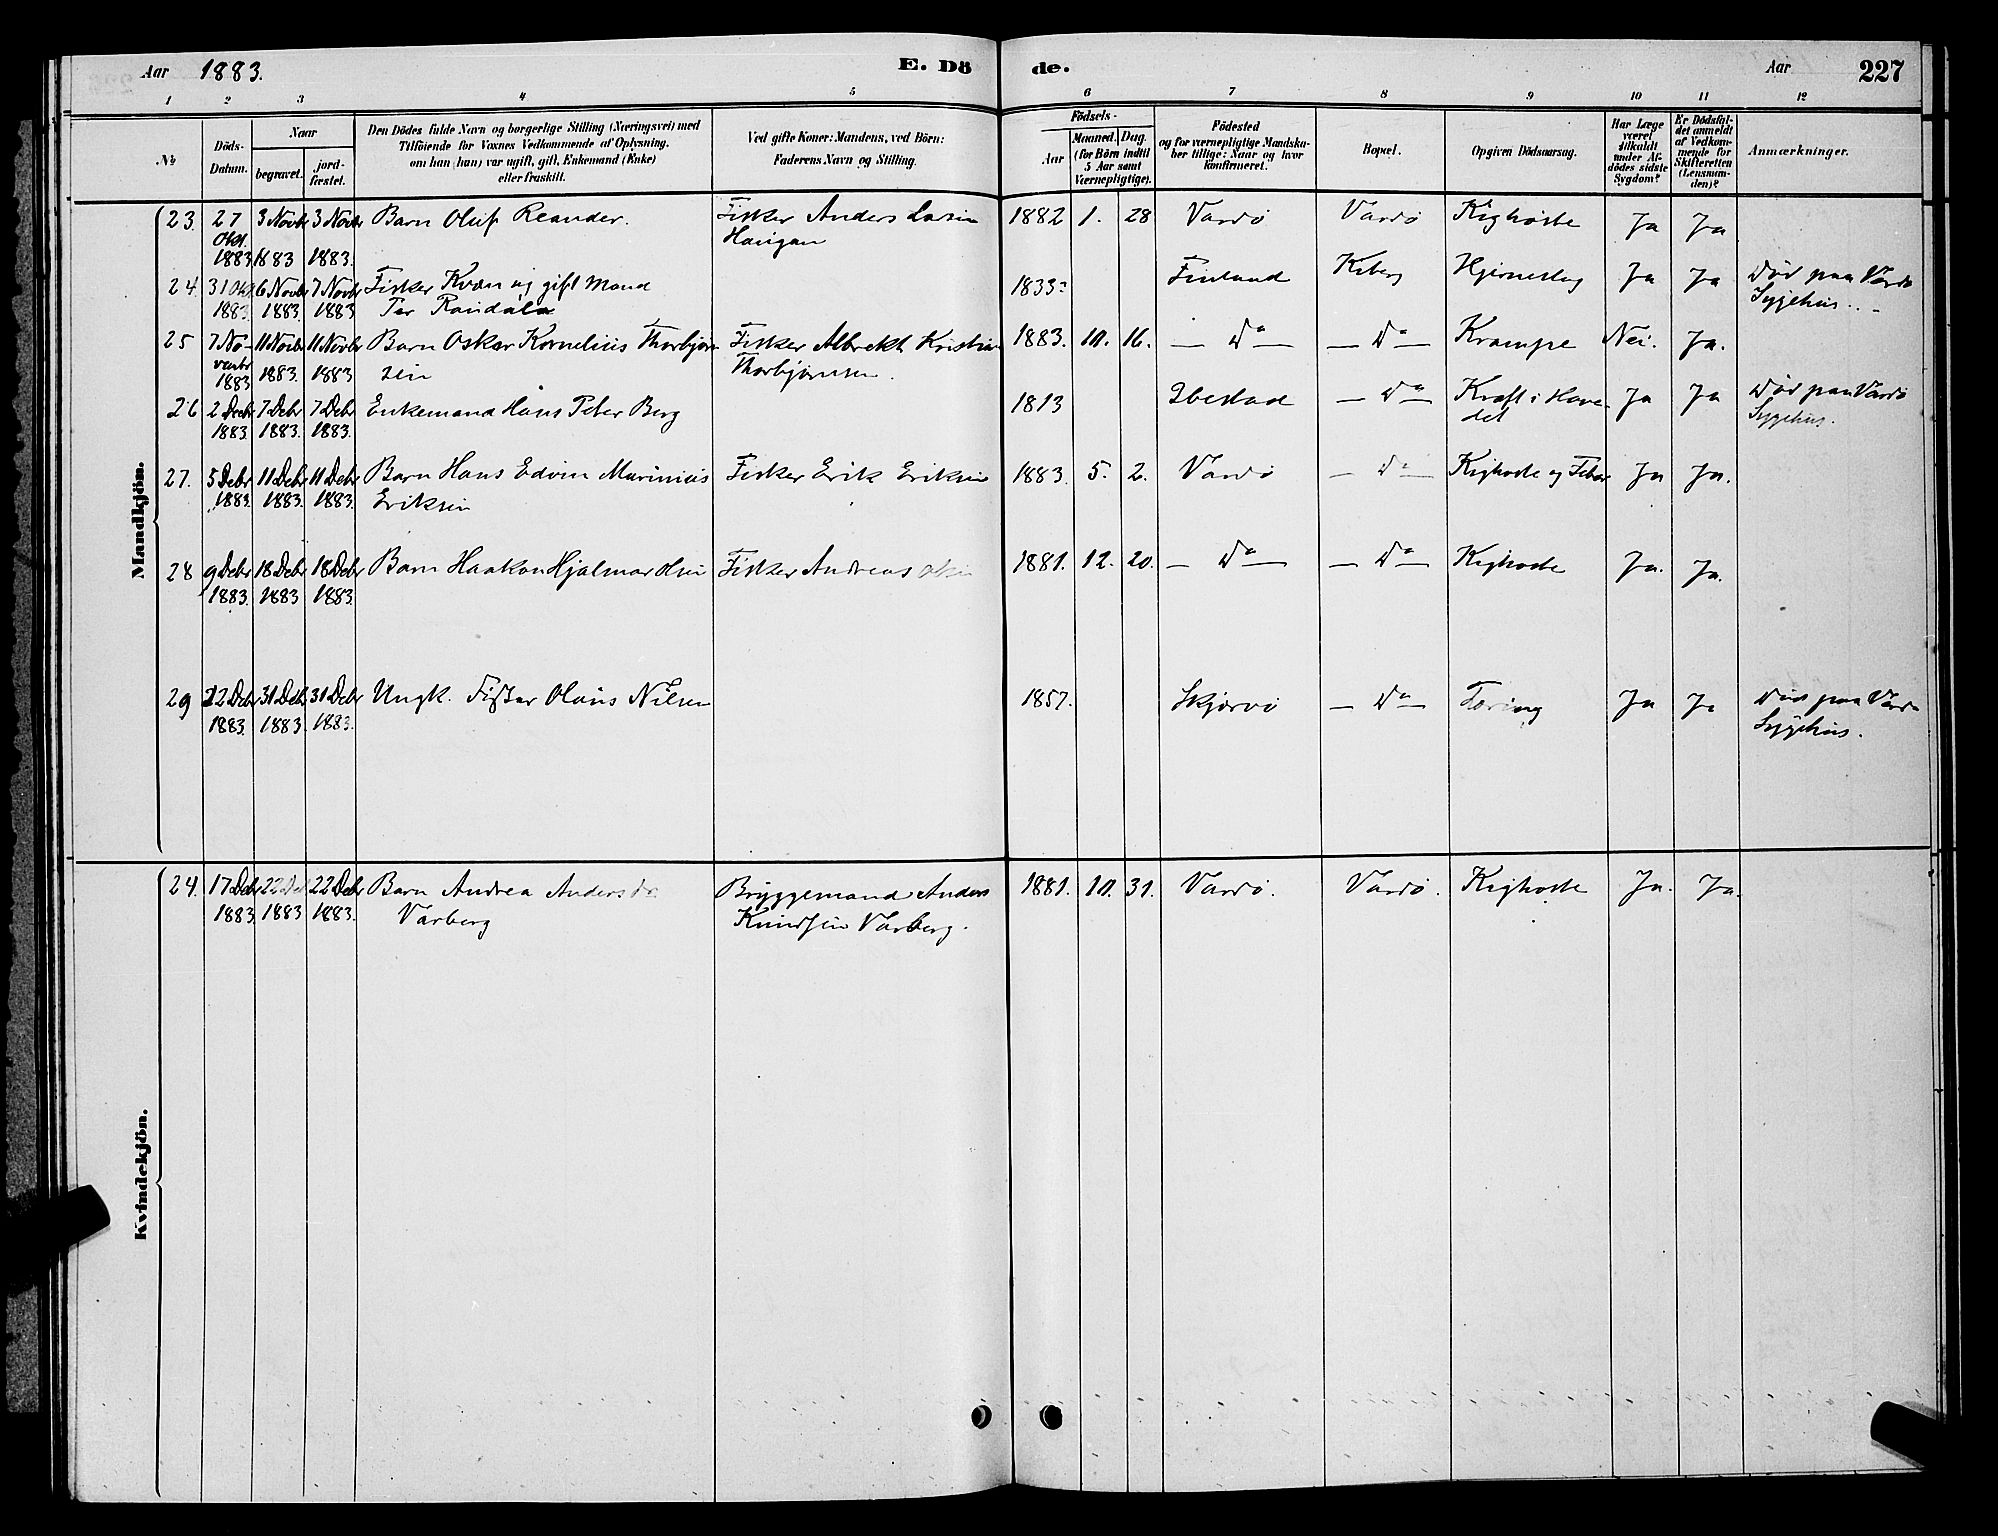 Aar 1883. E. Dö
de. Aar 227
1 2 3 4 5
6 7 8 9 10 11 12
№
Döds-
Datum.
Naar
begravet.
jord-
fæstet.
Den Dödes fulde Navn og borgerlige Stilling (Næringsvei) med
Tilföiende for Voxnes Vedkommende af Oplysning,
om han (hun) var ugift, gift, Enkemand (Enke)
eller fraskilt.
Ved gifte Koner: Mandens, ved Börn:
Faderens Navn og Stilling.
Födsels-
Aar
Maaned. Dag.
(for Börn indtil
5 Aar samt
Værnepligtige).
Födested
og for værnepligtige Mandska-
ber tillige: Naar og hvor
konfirmeret.
Bopæl.
Opgiven Dödsaarsag.
Har Læge
været
tilkaldt
under Af-
dödes sidste
Sygdom?
Er Dödsfal-
det anmeldt
af Vedkom-
mende for
Skifteretten
(Lensman-
den)?
Anmærkninger.
Mandkjön.
23. 27 3 Novbr 3 Novbr Barn Oluf Reander. Fisker Anders Larsen 1882 1. 28 Vardö Vardö Kighoste Ja Ja
Okt. Haugan
1883 1883 1883.
24. 31 Okt 6 Novbr 7 Novbr Fisker Kvæn og gift Mand 1833? Finland Kiberg Hjerneslag Ja Ja Död paa Vardö
1883. 1883. 1883 Per Sygehus.
25 7 No- 11 Novbr 11 Novbr Barn Oskar Kornelius Thorbjørn- Fisker Albrekt Kristian 1883. 10. 16. — Do — — Do — Krampe Nei. Ja.
vembr 1883. 1883 sen Thorbjørnsen.
1883
26 2 Decbr 7 Debr 7 Debr Enkemand Hans Peter Berg 1813 Ibestad — Do — Kræft i Hove- Ja Ja Död paa Vardö
1883. 1883. 1883. det Sygehus.
27. 5 Debr 11 Debr 11 Debr Barn Hans Edvin Marinius Fisker Erik Eriksen 1883. 5. 2. Vardö — Do — Kighoste og Feber Ja Ja.
1883. 1883. 1883. Eriksen
28 9 Debr 18 Debr 18 Debr Barn Haakon Hjalmar Olsen Fisker Andreas Olsen 1881. 12. 20. — Do — — Do — Kighoste Ja. Ja.
1883. 1883 1883.
29 22 Debr 31 Debr 31 Debr Ungk. Fisker Olaus Nilsen 1857. Skjervö — Do — Tæring Ja Ja Död paa Vardö
1883. 1883. 1883. Sygehus.
Kvindekjön.
24. 17 Debr 22 Debr 22 Debr Barn Andrea Andersdr Bryggemand Anders 1881. 10. 31. Vardö. Vardö. Kighoste Ja. Ja.
1883 1883 1883. Varberg Knudsen Varberg.